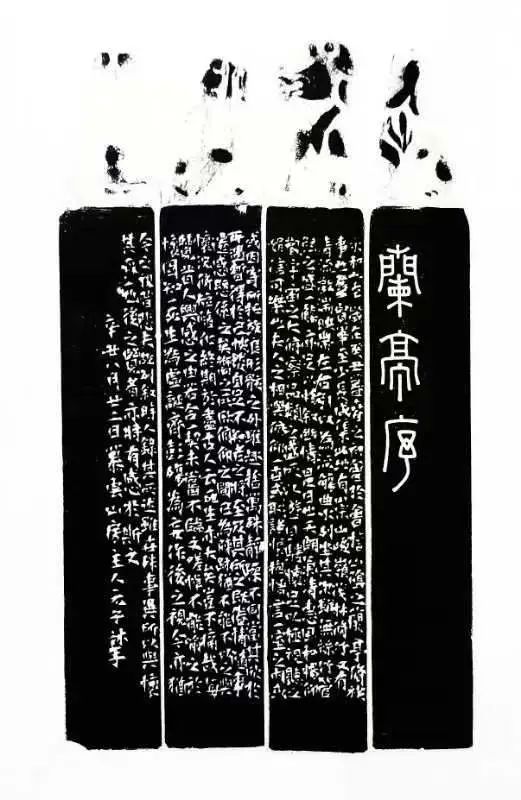 蘭亭序
永和九年歲在癸丑暮春之初會于會稽山陰之蘭亭脩禊
事也羣賢畢至少長咸集此地有崇山峻領茂林脩竹又有
清流激湍映帶左右引以為流觴曲水列坐其次雖無絲竹管
絃之盛一觴一詠亦足以暢敘幽情是日也天朗氣清惠風和暢仰
觀宇宙之大俯察品類之盛所以遊目騁懷足以極視聽之
娛信可樂也夫人之相與俯仰一世或取諸懷抱悟言一室之內
或因寄所託放浪形骸之外雖趣舍萬殊靜躁不同當其欣於
所遇暫得於己快然自足不知老之將至及其所之既惓情隨事
遷感慨係之矣向之所欣俛仰之閒已為陳迹猶不能不以之興
懷況脩短隨化終期於盡古人云死生亦大矣豈不痛哉每
覽昔人興感之由若合一契未嘗不臨文嗟悼不能喻之於
懷固知一死生為虛誕齊彭殤為妄作後之視今亦猶
今之視昔悲夫故列敘時人錄其所述雖世殊事異所以興懷
其致一也後之覽者亦將有感於斯文
八月廿二日慕雲山房主人